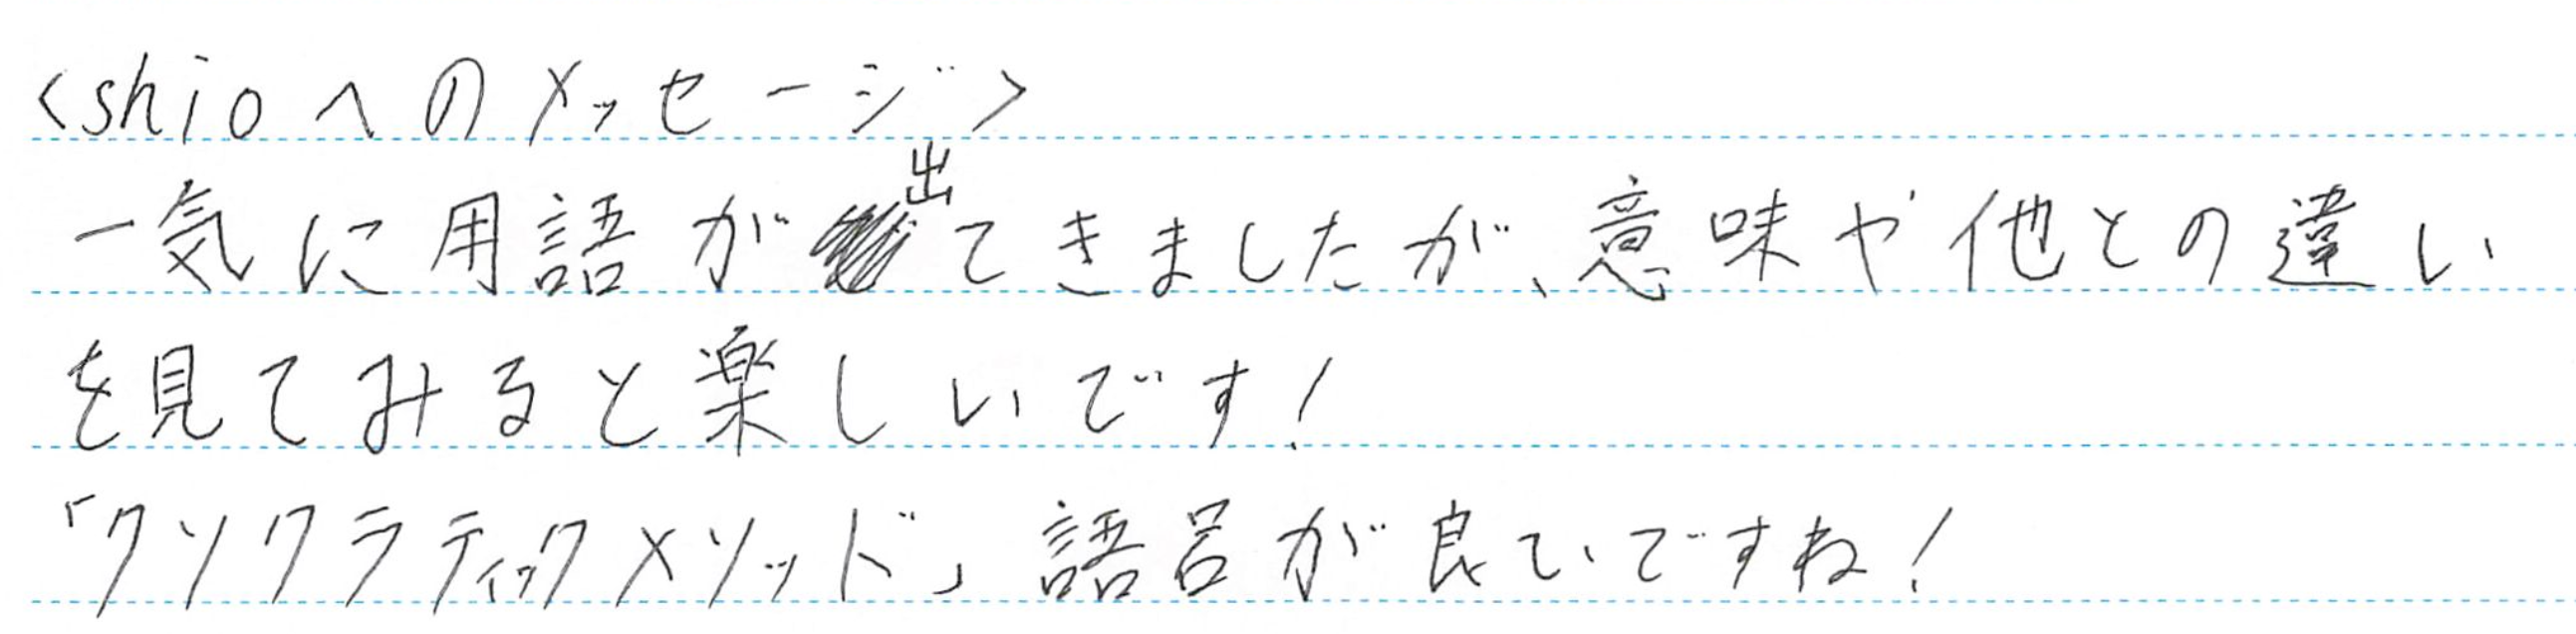 <shioへのメッセージ>
一気に用語が出てきましたが、意味や他との違い
を見てみると楽しいです!
「クソクラティックメソッド」語呂が良いですね!